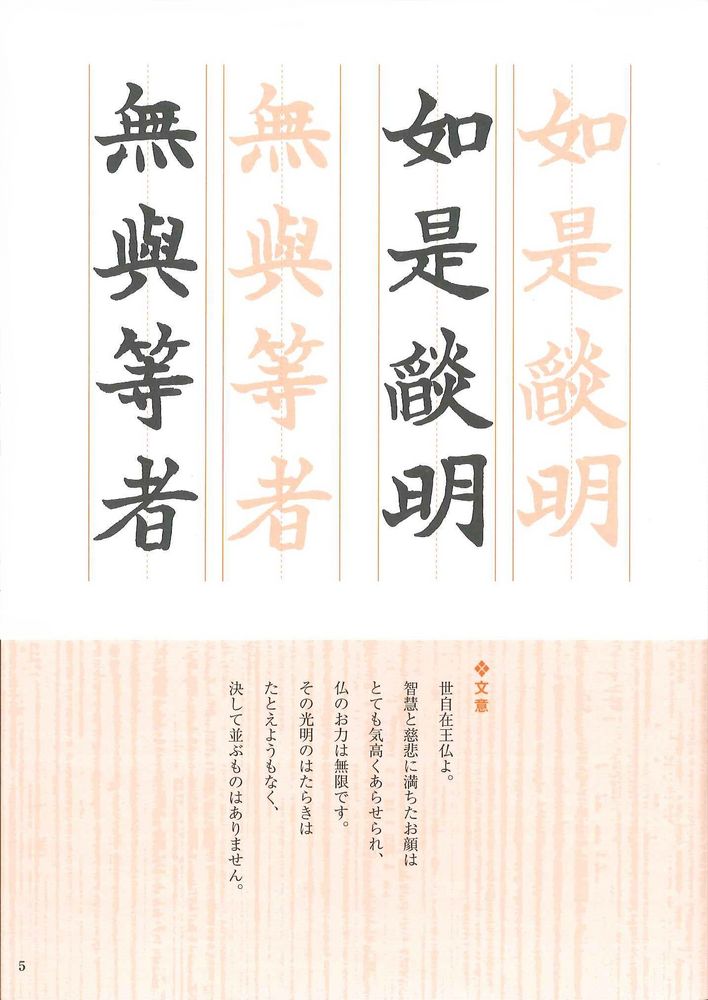 如是燄明
如是燄明
無與等者
無與等者
文意
世自在王仏よ。
智慧と慈悲に満ちたお顔は
とても気高くあらせられ、
仏のお力は無限です。
その光明のはたらきは
たとえようもなく、
決して並ぶものはありません。
5